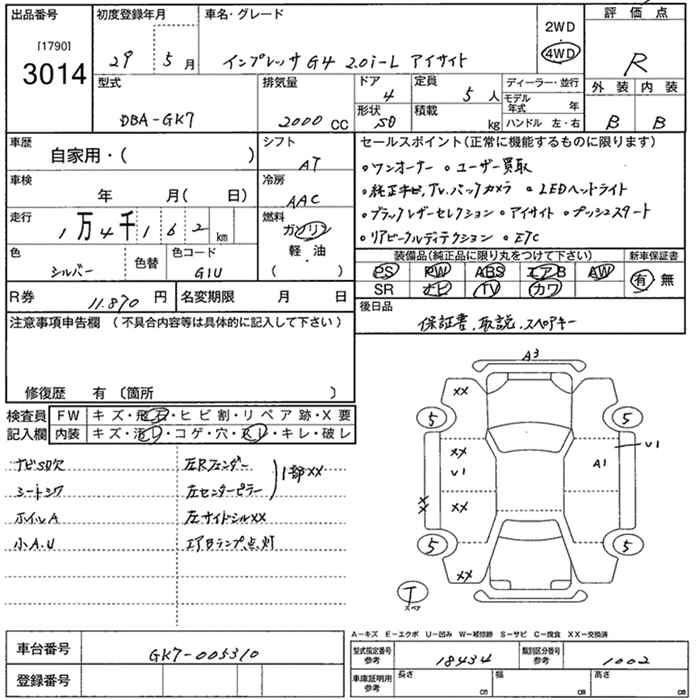 出品番号 初度登録年月 車名・グレード 2WD 評価点
[1790] 4WD
3014 29 5月 インプレッサ G4 2.0i-L アイサイト R
型式 排気量 ドア 定員 ディーラー・並行 外装 内装
4 5人 モデル年式 年
DBA-GK7 2000cc 形状 5D 積載 kg ハンドル 左・右 B B
車歴 シフト セールスポイント(正常に機能するものに限ります)
自家用・( ) AT ・ワンオーナー ・ユーザー買取
車検 冷房 ・純正ナビ,TV,バックカメラ ・LEDヘッドライト
年 月( 日) AAC ・ブラックレザーセレクション ・アイサイト ・プッシュスタート
走行 1万4千162km 燃料 ガソリン ・リアビークルディテクション ・ETC
色 色替 色コード 軽・油 装備品(純正品に限り丸をつけて下さい) 新車保証書
シルバー G1U ( ) PS PW ABS エアB AW 有・無
R券 11.870円 名変期限 月 日 SR ナビ TV カワ
注意事項申告欄(不具合内容等は具体的に記入して下さい) 後日品
保証書,取説,スペアキー
修復歴 有〔箇所 〕
検査員 FW キズ・飛石・ヒビ割・リペア跡・X要
記入欄 内装 キズ・汚レ・コゲ・穴・スレ・キレ・破レ
ナビSD欠 左Rフェンダー
シートシワ 左センターピラー 1部XX
ホイルA 左サイドシルXX
小A.U エアBランプ点灯
A3
XX
5 5
XX U1
U1 A1
XX XX
5 5
XX
T
スペア
A-キズ E-エクボ U-凹み W-補修跡 S-サビ C-腐食 XX-交換済
車台番号 GK7-005310 型式指定番号 参考 18434 類別区分番号 参考 1002
登録番号 車庫証明用 参考 長さ cm 幅 cm 高さ cm